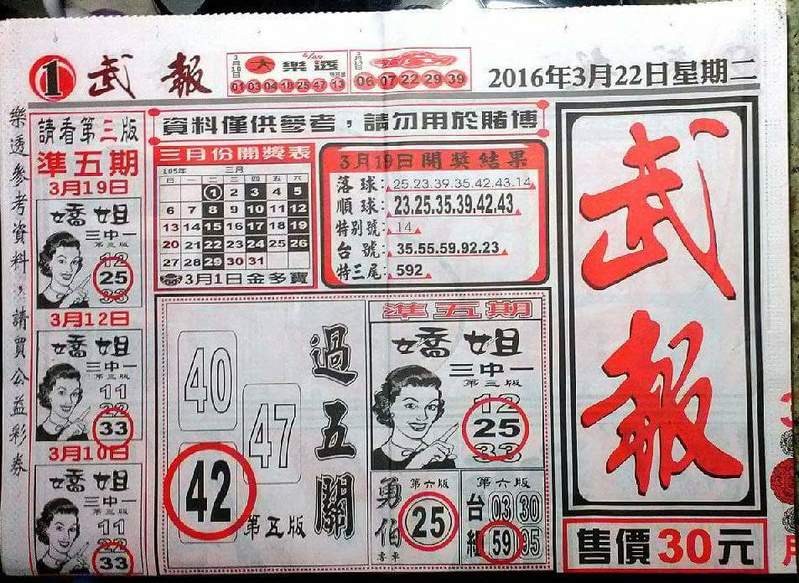 1 武報
大樂透
01 03 04 18 25 47 13
06 07 22 29 39
2016年3月22日星期二
樂透參考資料,請買公益彩券
資料僅供參考,請勿用於賭博
請看第三版
準五期
3月19日
嬌姐
三中一
第三版
12
25
33
3月12日
嬌姐
三中一
第三版
11
22
33
3月10日
嬌姐
三中一
11
22
33
三月份開獎表
105年 三月
日 一 二 三 四 五 六
1 2 3 4 5
6 7 8 9 10 11 12
13 14 15 16 17 18 19
20 21 22 23 24 25 26
27 28 29 30 31
3月1日金多寶
3月19日開獎結果
落球:25.23.39.35.42.43.14
順球:23.25.35.39.42.43
特別號:14
台號:35.55.59.92.23
特三尾:592
過五關
40
47
42
第五版
準五期
嬌姐
三中一
第三版
12
25
33
勇伯
第六版
25
第六版
台
03 30
59 95
武報
售價30元